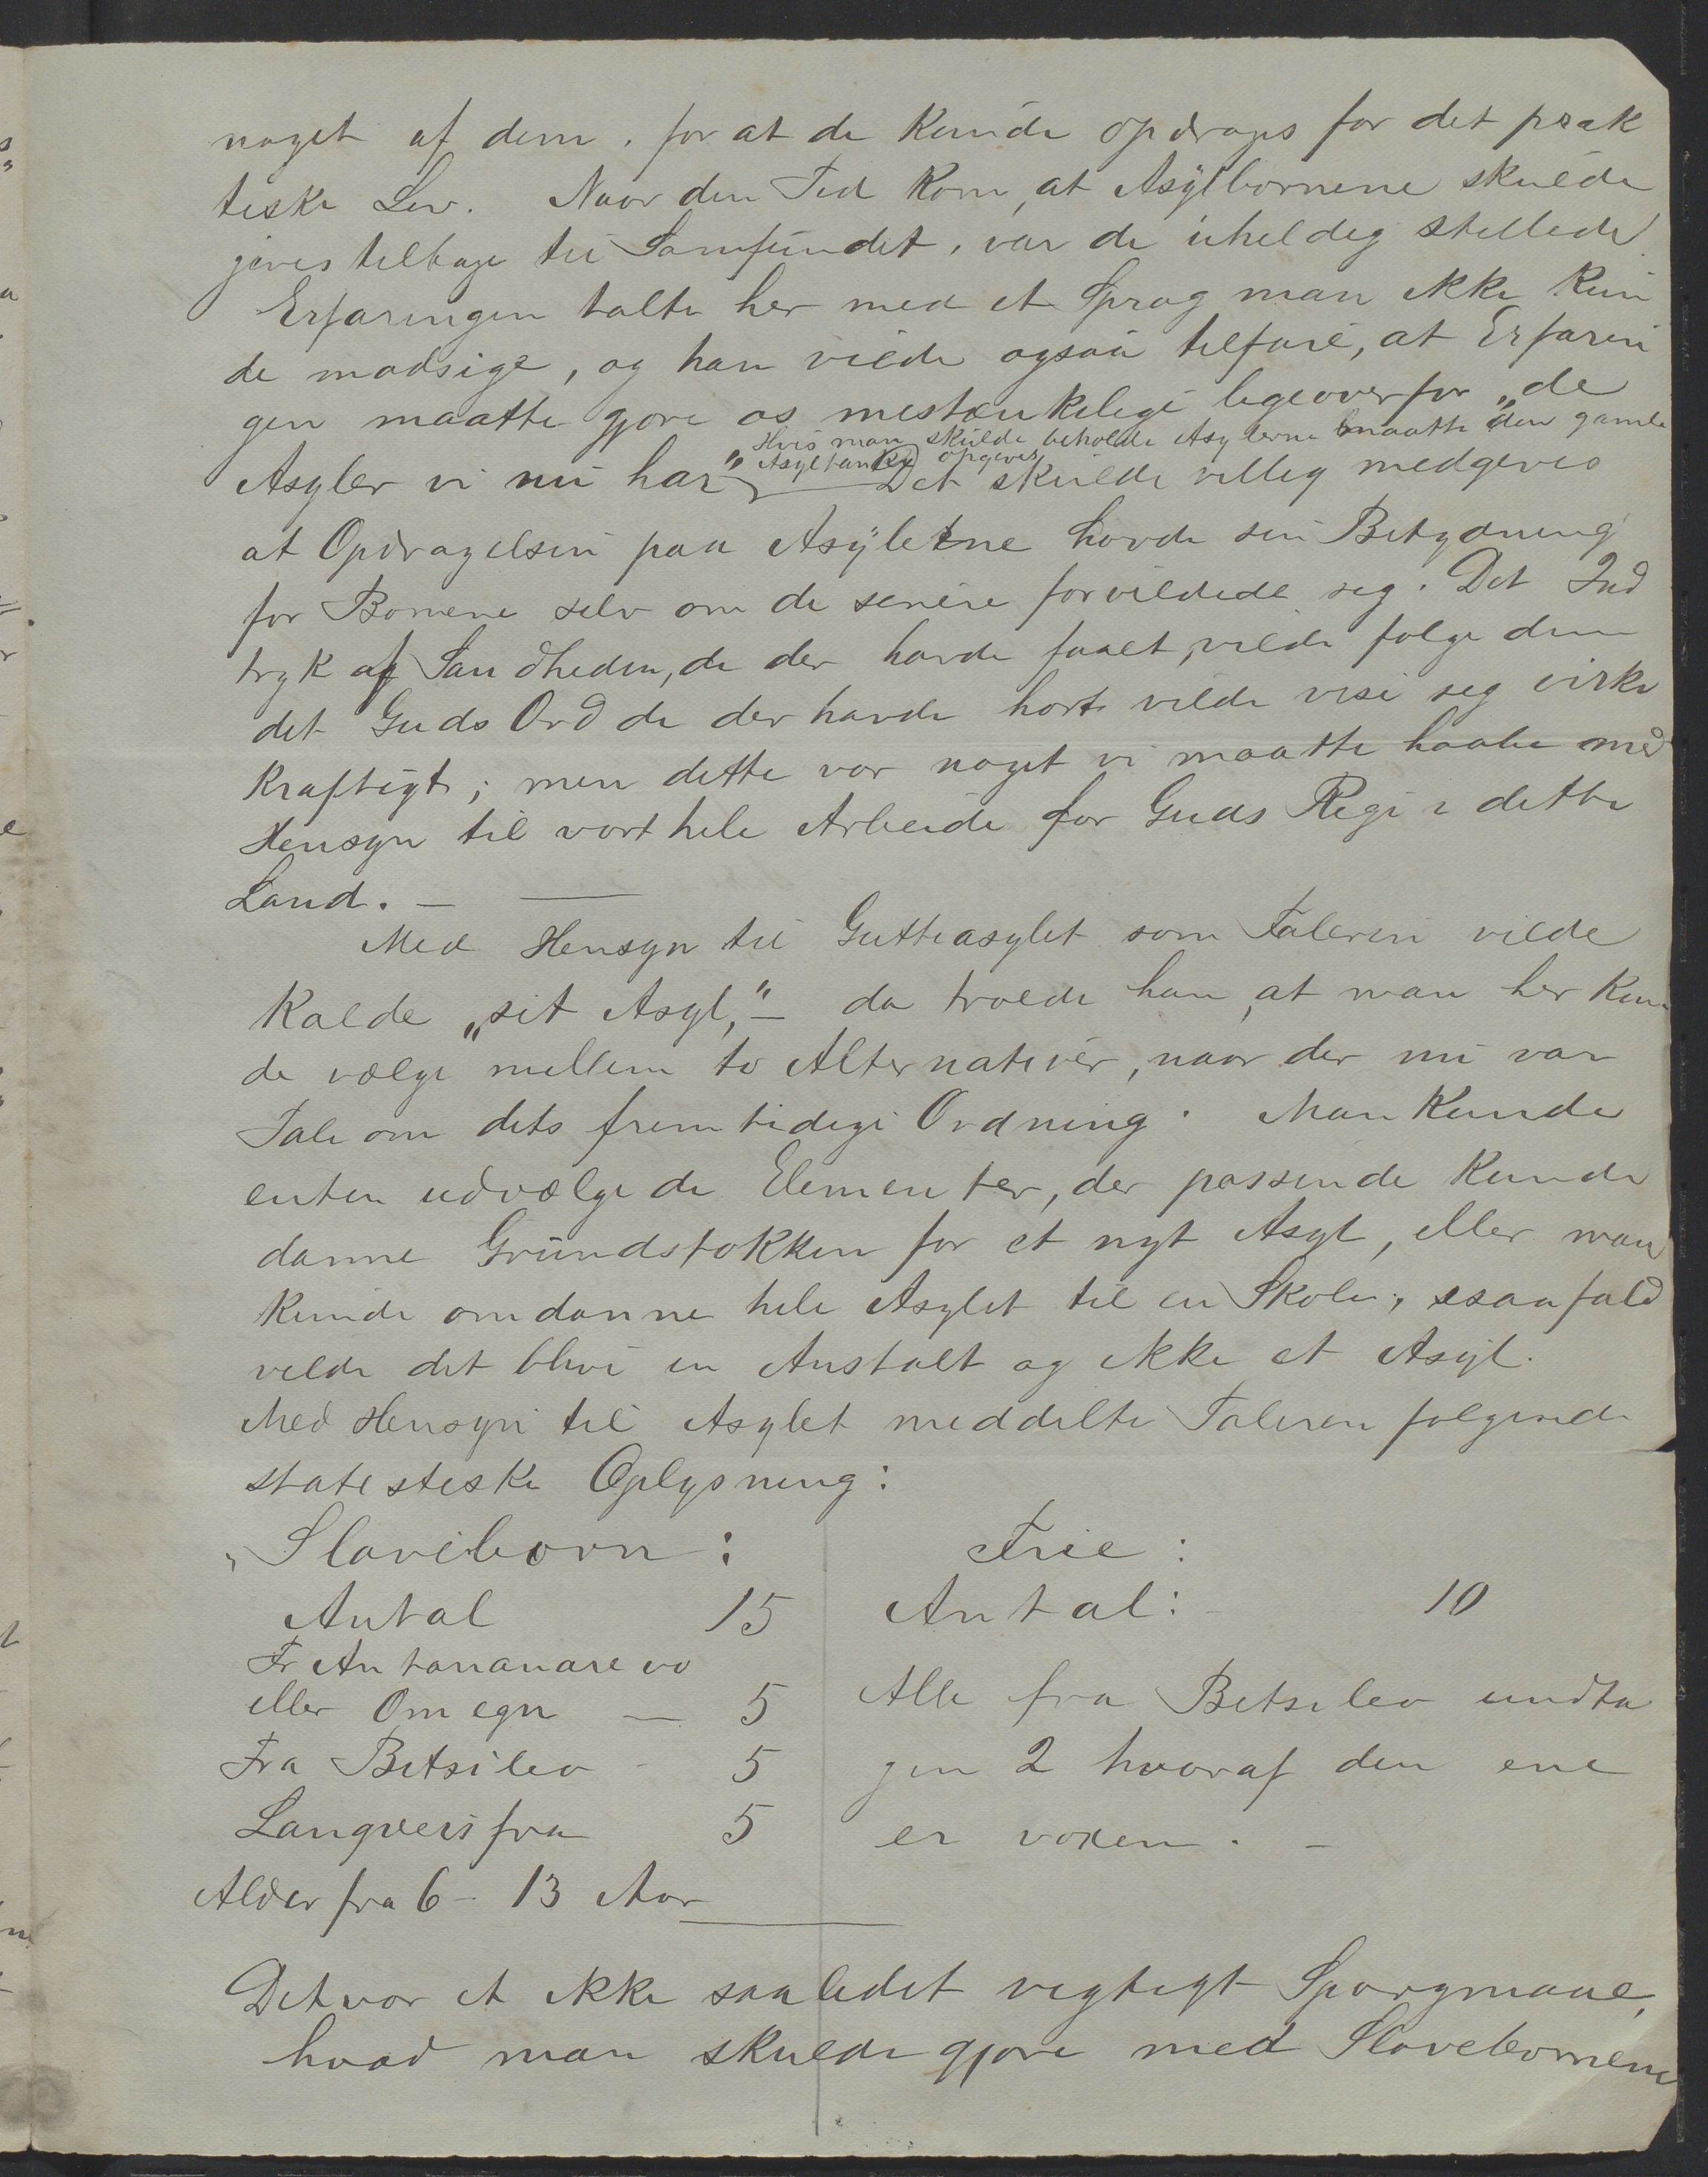 noget af dem, for at de kunde opdrages for det prak
tiske Liv. Naar den Tid kom, at Asylbørnene skulde
gives tilbage til Samfundet, var de uheldig stillede.
Erfaringen talte her med et Sprog man ikke kun
de modsige, og han vilde ogsaa tilføie, at Erfarin
gen maatte gjøre os mistænkelige ligeoverfor "de
Hvis man skulde beholde Asylerne maatte den gamle
Asyltanke opgives
Asyler vi nu har" Det skulde villig medgives
at Opdragelsen paa Asylerne havde sin Betydning
for Børnene selv om de senere forvildede sig. Det Ind
tryk af Sandheden, de der havde faaet, vilde følge dem
det Guds Ord de der havde hørt vilde vise sig virke
kraftigt; men dette var noget vi maatte haabe med
Hensyn til vort hele Arbeide for Guds Rige i dette
Land. —
Med Hensyn til Gutteasylet som Taleren vilde
kalde "sit Asyl," – da troede han, at man her kun
de vælge mellem to Alternativer, naar der nu var
Tale om dets fremtidige Ordning. Man kunde
enten udvælge de Elementer, der passende kunde
danne Grundstokken for et nyt Asyl, eller man
kunde omdanne hele Asylet til en Skole, isaafald
vilde det blive en Anstalt og ikke et Asyl.
Med Hensyn til Asylet meddelte Taleren følgende
statistiske Oplysning:
Slavebørn: Frie:
Antal 15 Antal: 10
Fr Antananarivo
eller Omegn — 5 Alle fra Betsileo undta
Fra Betsileo - 5 gen 2 hvoraf den ene
Langveis fra 5 er voxen. –
Alder fra 6 - 13 Aar
Det var et ikke saa lidet vigtigt Spørgmaal,
hvad man skulde gjøre med Slavebørnene